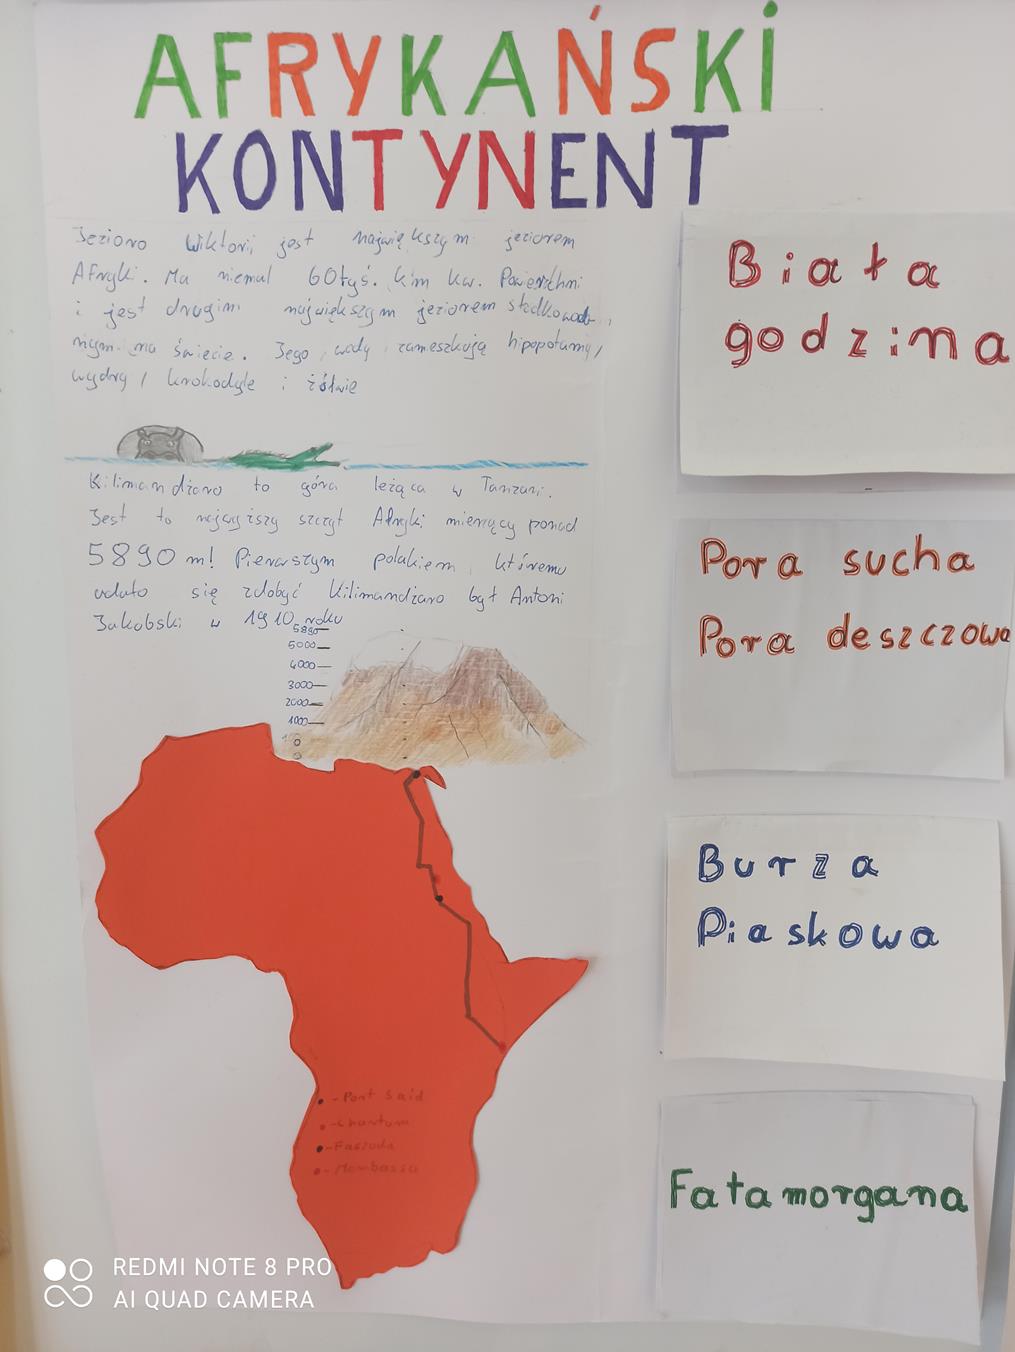 AFRYKAŃSKI
KONTYNENT
Jezioro Wiktorii jest największym jeziorem
Afryki. Ma niemal 60tyś. km kw. Powierzchni
i jest drugim największym jeziorem słodkowod-
nym na świecie. Jego wody zameszkują hipopotamy,
wydry, krokodyle i żółwie
Kilimandżaro to góra leżąca w Tanzani.
Jest to najwyższy szczyt Afryki mierzący ponad
5890 m! Pierwszym polakiem, któremu
udało się zdobyć Kilimandżaro był Antoni
Jakobski w 1910 roku
5890
5000
4000
3000
2000
1000
0
Port Said
Chartum
Faszoda
Mombassa
Biała
godzina
Pora sucha
Pora deszczowa
Burza
Piaskowa
Fatamorgana
REDMI NOTE 8 PRO
AI QUAD CAMERA